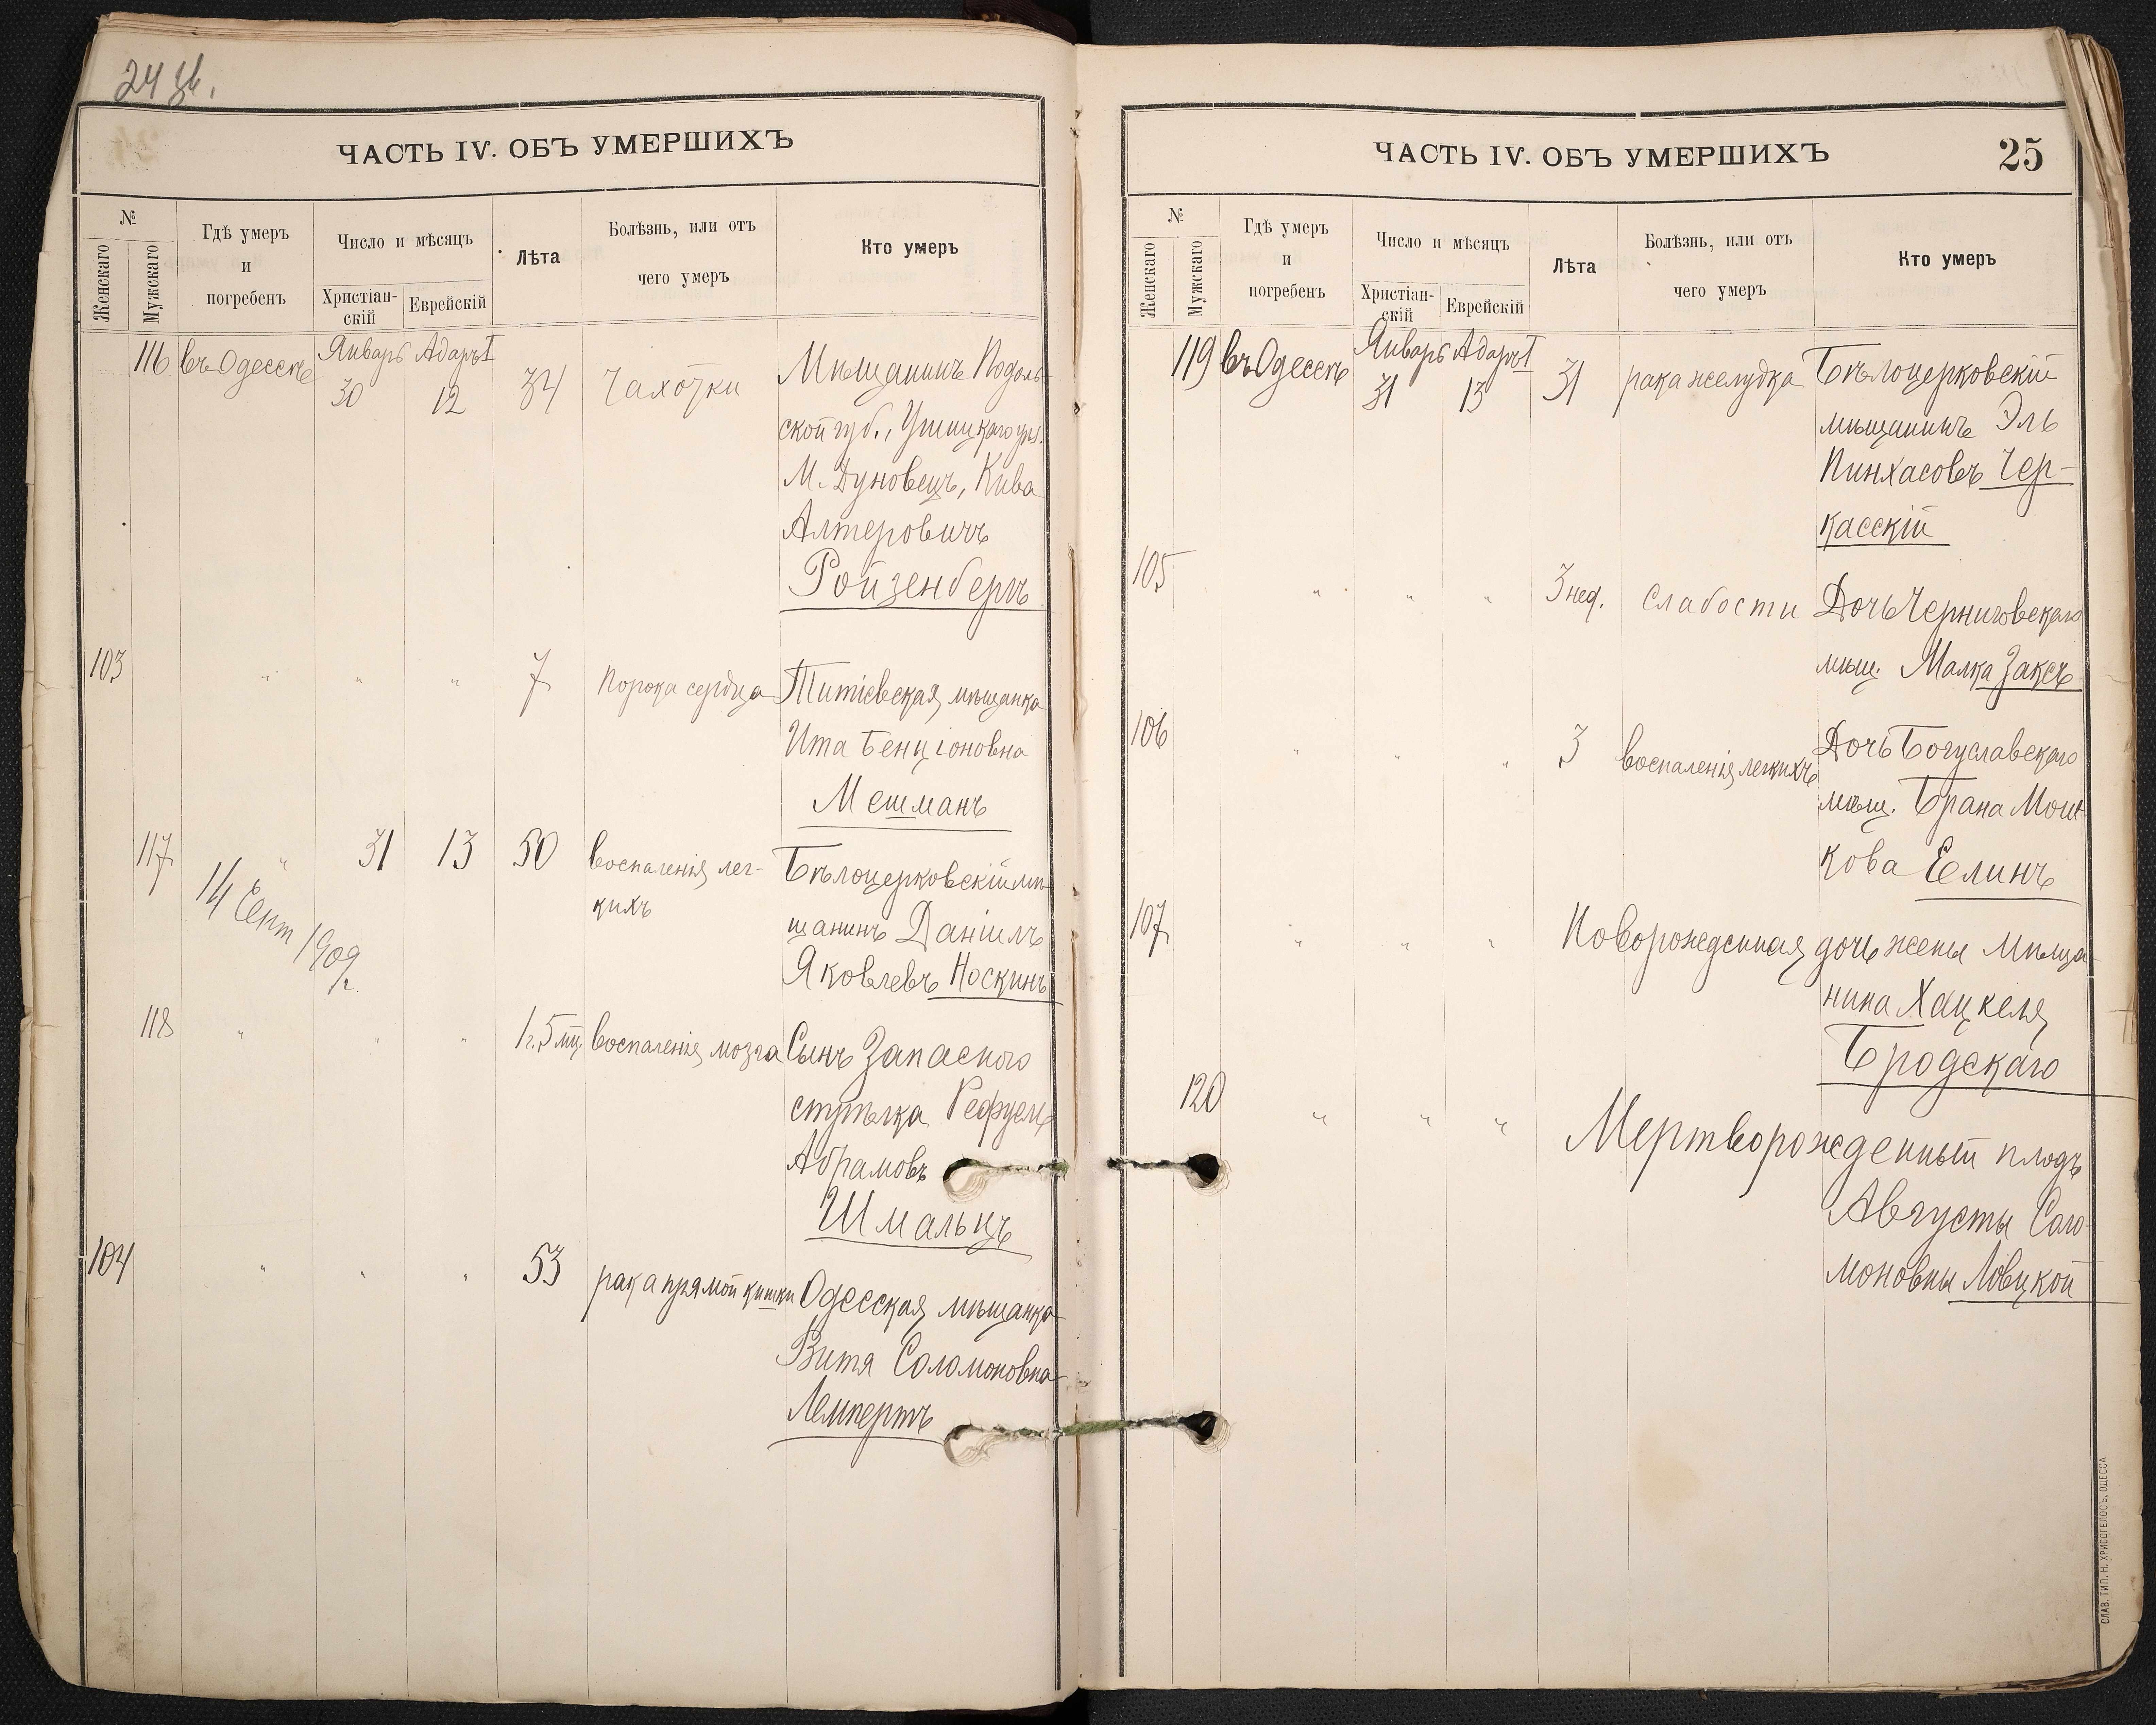 24 зв.
ЧАСТЬ IV. ОБЪ УМЕРШИХЪ
№
Женскаго
Мужскаго
Гдѣ умеръ
и
погребенъ
Число и мѣсяцъ
Христіан-
скій
Еврейскій
Лѣта
Болѣзнь, или отъ
чего умеръ
Кто умеръ
116 въ Одессѣ Январь 30 Адаръ I 12 34 чахотки Мѣщанинъ Подоль-
ской губ., Ушицкаго уѣз.
М. Дуновецъ, Кива
Алтеровичъ
Ройзенбергъ
103 " " " 7 порока сердца Титіевская мѣщанка
Ита Бенціоновна
Мешманъ
117 " 31 13 50 воспаленія лег- Бѣлоцерковскій мѣ-
кихъ щанинъ Даніилъ
Яковлевъ Носкинъ
14 Сент 1909 г.
118 " " " 1 г. 5 мц. воспаленія мозга Сынъ Запаснаго
стрѣлка
Абрамовъ
Шмальцъ
104 " " " 53 рака прямой кишки Одесская мѣщанка
Витя Соломоновна
Лемпертъ
ЧАСТЬ IV. ОБЪ УМЕРШИХЪ
25
№
Женскаго
Мужскаго
Гдѣ умеръ
и
погребенъ
Число и мѣсяцъ
Христіан-
скій
Еврейскій
Лѣта
Болѣзнь, или отъ
чего умеръ
Кто умеръ
119 въ Одессѣ Январь 31 Адаръ I 13 31 рака желудка Бѣлоцерковскій
мѣщанинъ Эль
Пинхасовъ Чер-
касскій
105 " " " 3 нед. слабости Дочь Черниговскаго
мѣщ. Малка Заксъ
106 " " " 3 воспаленія легкихъ Дочь Богуславскаго
мѣщ. Брана Мош-
кова Елинъ
107 " " " Новорожденная дочь жены мѣща-
нина Хацкеля
Бродскаго
120 " " " Мертворожденный плодъ
Августы Соло-
моновны Ловцкой
СЛАВ. ТИП. Н. ХРИСОГЕЛОСЪ, ОДЕССА